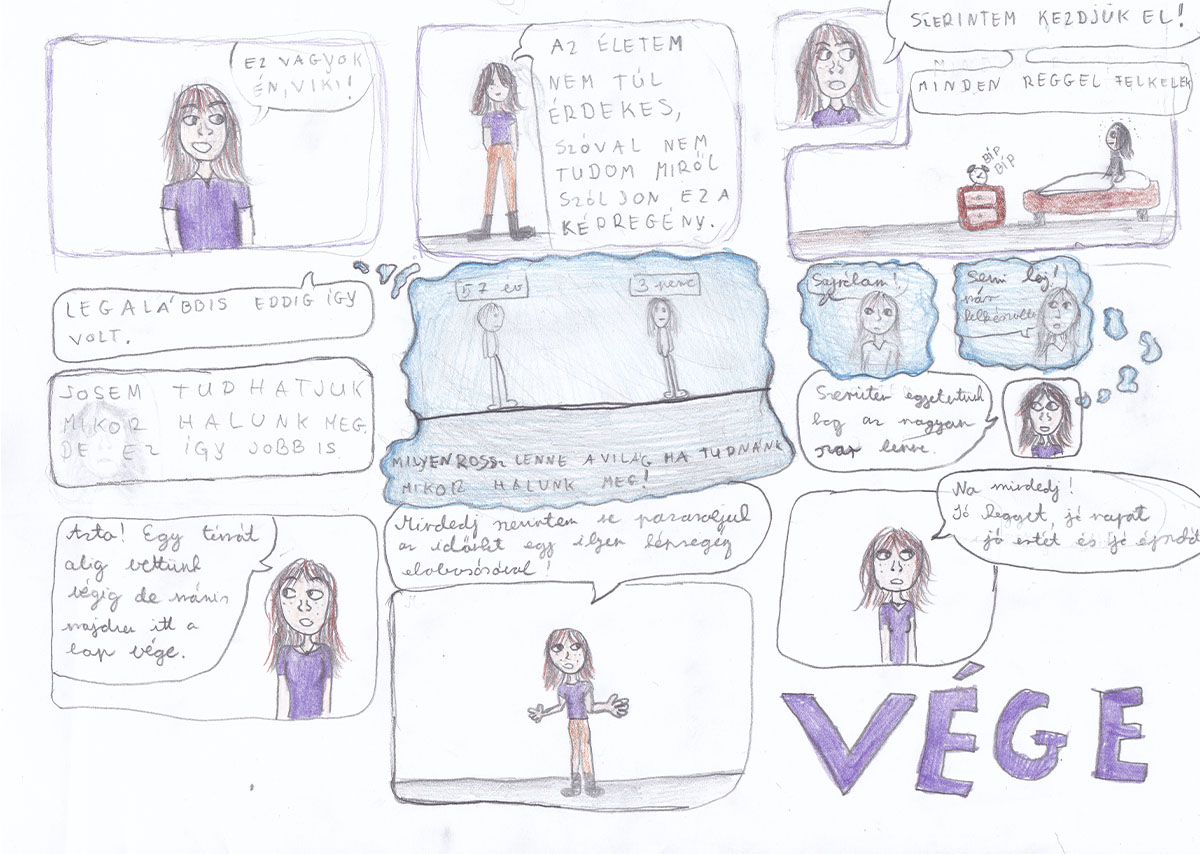 EZ VAGYOK
ÉN, VIKI!
AZ ÉLETEM
NEM TÚL
ÉRDEKES,
SZÓVAL NEM
TUDOM MIRŐL
SZÓLJON EZ A
KÉPREGÉNY.
SZERINTEM KEZDJÜK EL!
MINDEN REGGEL FELKELEK
BÍP
BÍP
LEGALÁBBIS EDDIG ÍGY
VOLT.
SOSEM TUDHATJUK
MIKOR HALUNK MEG.
DE EZ ÍGY JOBB IS
57 év
3 perc
MILYEN ROSSZ LENNE A VILÁG HA TUDNÁNK
MIKOR HALUNK MEG!
Sajnálom!
Semi baj!
már
felkészültem
Szerintem egyetértünk
hogy az nagyon
lenne.
Azta! Egy témát
alig vettünk
végig de máris
majdnem itt a
lap vége.
Mindegy szerintem se pazaroljuk
az időnket egy ilyen képregény
elolvasásával!
Na mindegy!
Jó reggelt, jó napot
jó estét és jó éjszakát
VÉGE